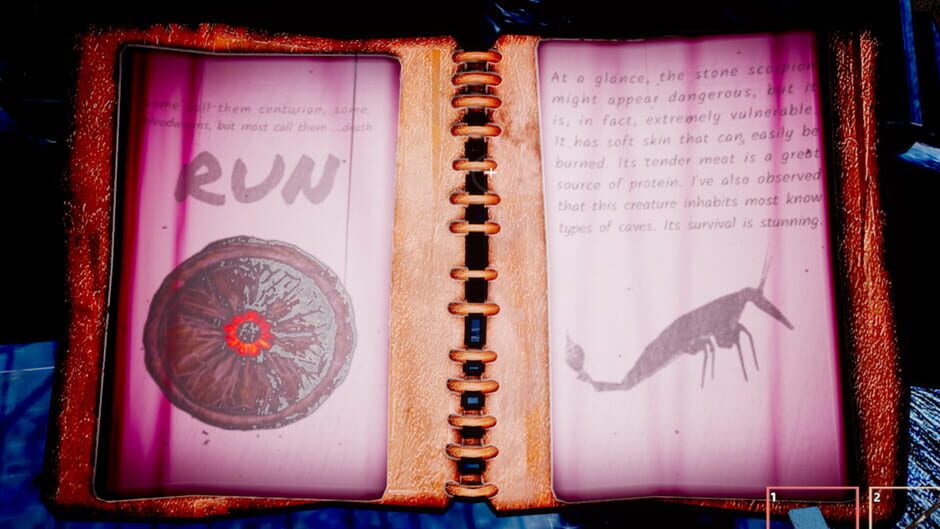 Some call them centurion, some
bloodworms, but most call them ...death
RUN
At a glance, the stone scorpion
might appear dangerous, but it
is, in fact, extremely vulnerable.
It has soft skin that can easily be
burned. Its tender meat is a great
source of protein. I've also observed
that this creature inhabits most know
types of caves. Its survival is stunning.
1
2